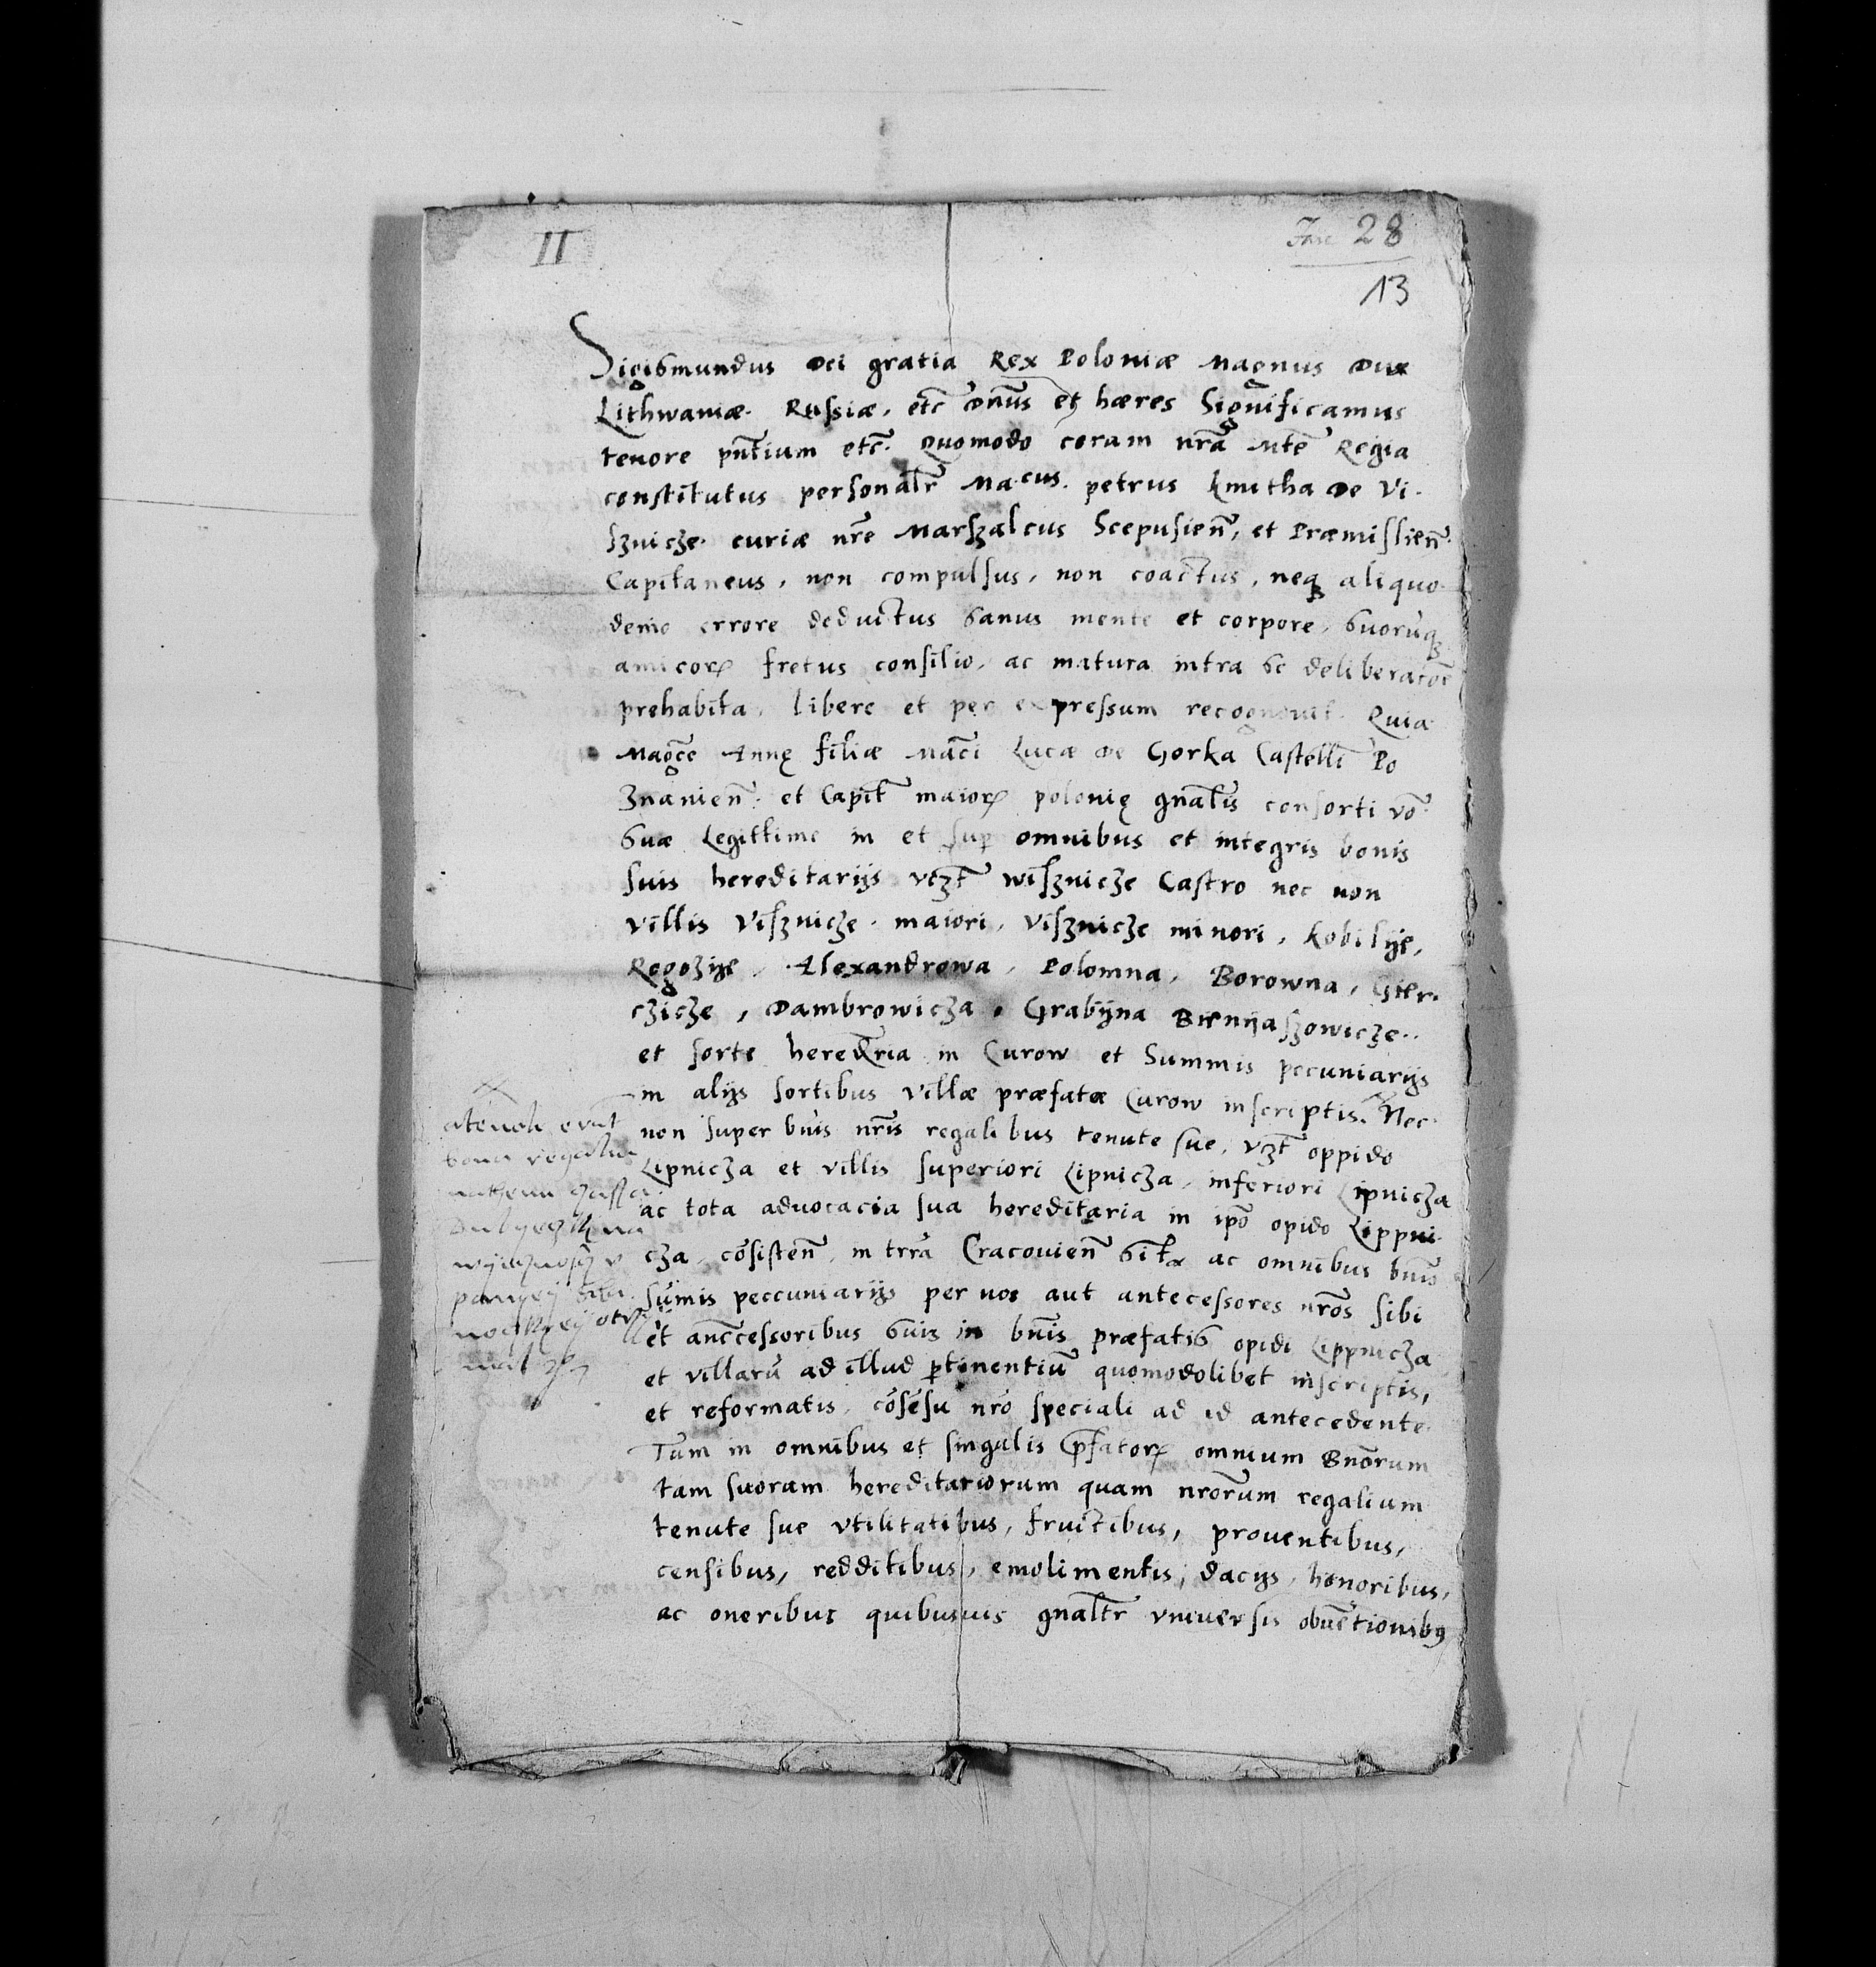 II
Fasc 28
13
Sigismundus Dei gratia Rex Poloniæ Magnus Dux
Lithwaniæ Russiæ, etc̄ dn̄us et hæres Significamus
tenore pn̄tium etc̄. Quomodo coram nr̄a Mte Regia
constitutus personalr̄ Ma.cus. petrus kmitha de Vi-
sznicze curiæ nrē Marszalcus Scepusien̄, et Præmislien̄
Capitaneus, non compulsus, non coactus, neq₃ aliquo
demo errore deductus sanus mente et corpore, suorūq₃
amicorꝝ fretus consilio, ac matura intra se deliberatoē
prehabita, libere et per expressum recognouit. Quia
Magce Annę filiæ Mac̄i Lucæ de Gorka Castelli Po
Znanien̄. et Capit̄ maiorꝝ polonię gn̄alis consorti vō
suæ Legittime in et sup̄ omnibus et integris bonis
suis hereditarijs vcz̄t wisznicze Castro nec non
villis Visznicze maiori, Visznicze minori, kobilye,
Regozye, Alexandrowa, Polomna, Borowna, Gier-
czicze, Dambrowicza, Grabÿna Biernÿaszowicze..
et sorte hered̄ria in Curow et Summis pecuniarijs
in alijs sortibus villæ præfatæ Curow inscriptis. Nec
non super bn̄is nr̄is regalibus tenute sue, vz̄t oppido
Lipnicza et villis superiori Lipnicza, inferiori Lipnicza
ac tota aduocacia sua hereditaria in ip̄o opido Lippni-
cza, cōsisten̄ in trr̄a Cracouien̄ sit̄æ ac omnibus bn̄is
sūmis peccuniarijs per nos aut antecessores nrōs sibi
et anccessoribus suis in bn̄is præfatis opidi Lippnicza
et villarū ad illud ꝑtinentiū quomodolibet inscriptis,
et reformatis, cōsēsu nrō speciali ad id antecedente
Tum in omnibus et singulis p̄fatorꝝ omnium Bnōrum
tam suoram hereditariorum quam nrōrum regalium
tenute sue vtilitatibus, fructibus, prouentibus,
censibus, redditibus, emolimentis, dacijs, honoribus,
ac oneribus quibusuis gn̄altr vniuersis obuētionibꝰ
bona regalia